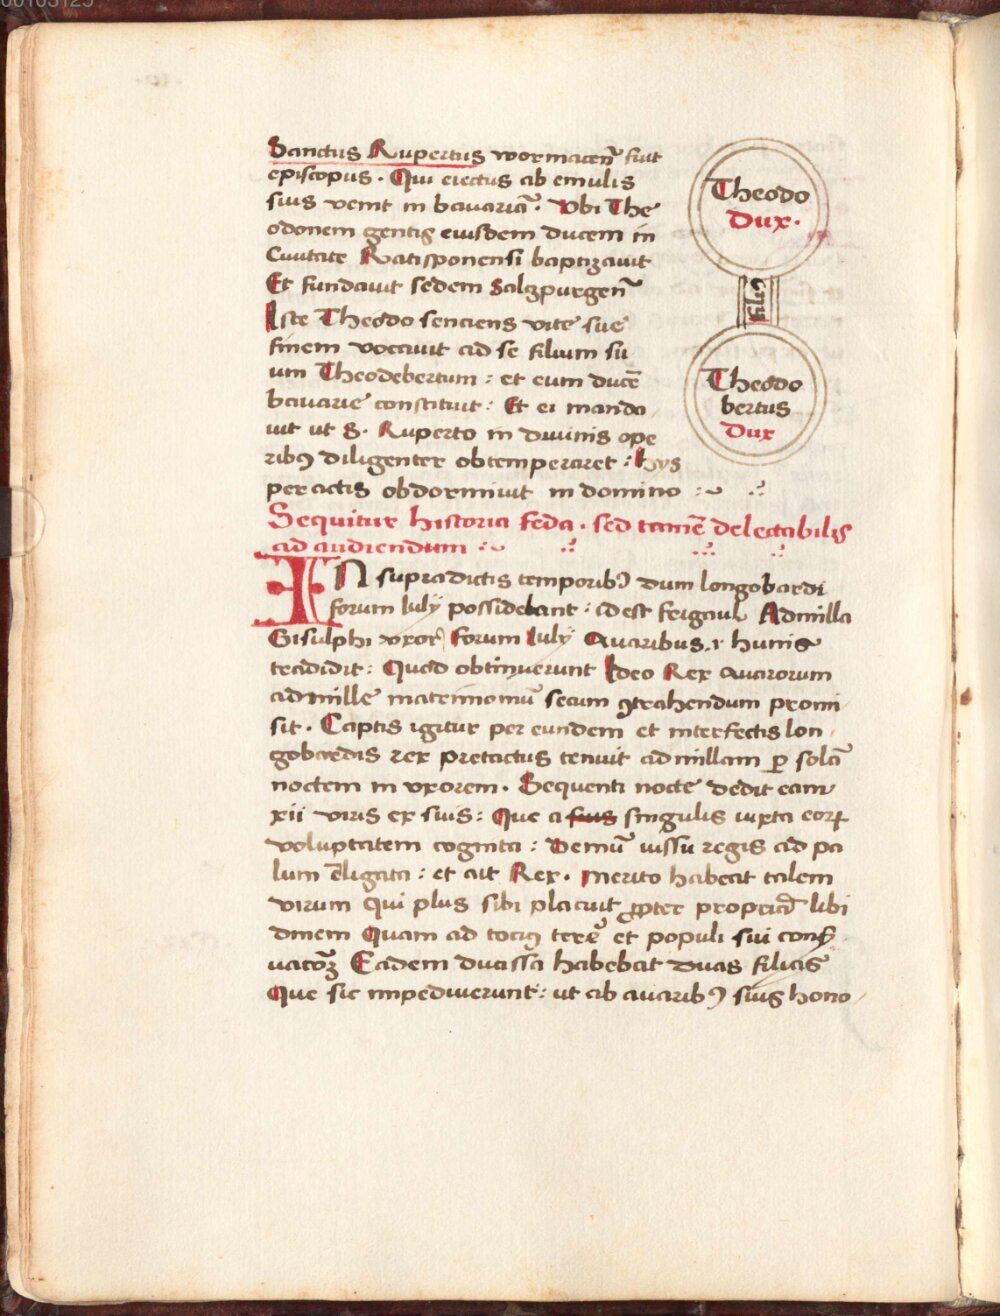 Sanctus Rupertus wormacen̄ fuit
episcopus · Qui eiectus ab emulis
suis venit in bauariā · Vbi The
odonem gentis eiusdem ducem in
Ciuitate Ratisponensi baptizauit
Et fundauit sedem Salczpurgen̄
Iste Theodo senciens vite sue
finem vocauit ad se filium su
um Theodebertum : et eum ducē
bauarie constituit : Et ei manda
uit ut S. Ruperto in diuinis ope
ribꝯ diligenter obtemperaret : hys
peractis obdormiuit in domino :~
Theodo
Dux ·
filiꝯ
Theodo
bertus
Dux
Sequitur historia feda · sed tamē delectabilis
ad audiendum :~
IN supradictis temporibꝯ dum longobardi
forum Iulÿ possidebant : id est feigaul Admilla
Gisulphi vxor forum Iulÿ Auaribus ⁊ hunis
tradidit : Quod obtinuerunt Ideo Rex auarorum
admille matrimoniū secum ꝯtrahendum promi
sit · Captis igitur per eundem et interfectis lon
gobardis rex pretactus tenuit admillam ꝑ solā
noctem in vxorem · Sequenti nocte dedit eam
xii viris ex suis : Que a suis singulis iuxta eoꝝ
voluptatem cognita : Demū iussu regis ad pa
lum ē ligata : et ait Rex · merito habeat talem
virum qui plus sibi placuit ꝓpter propriā libi
dinem Quam ad tociꝯ terre et populi sui conẜ
uacōꝫ Eadem ducissa habebat duas filias
Que sic impediuerunt : ut ab auaribꝯ suis hono